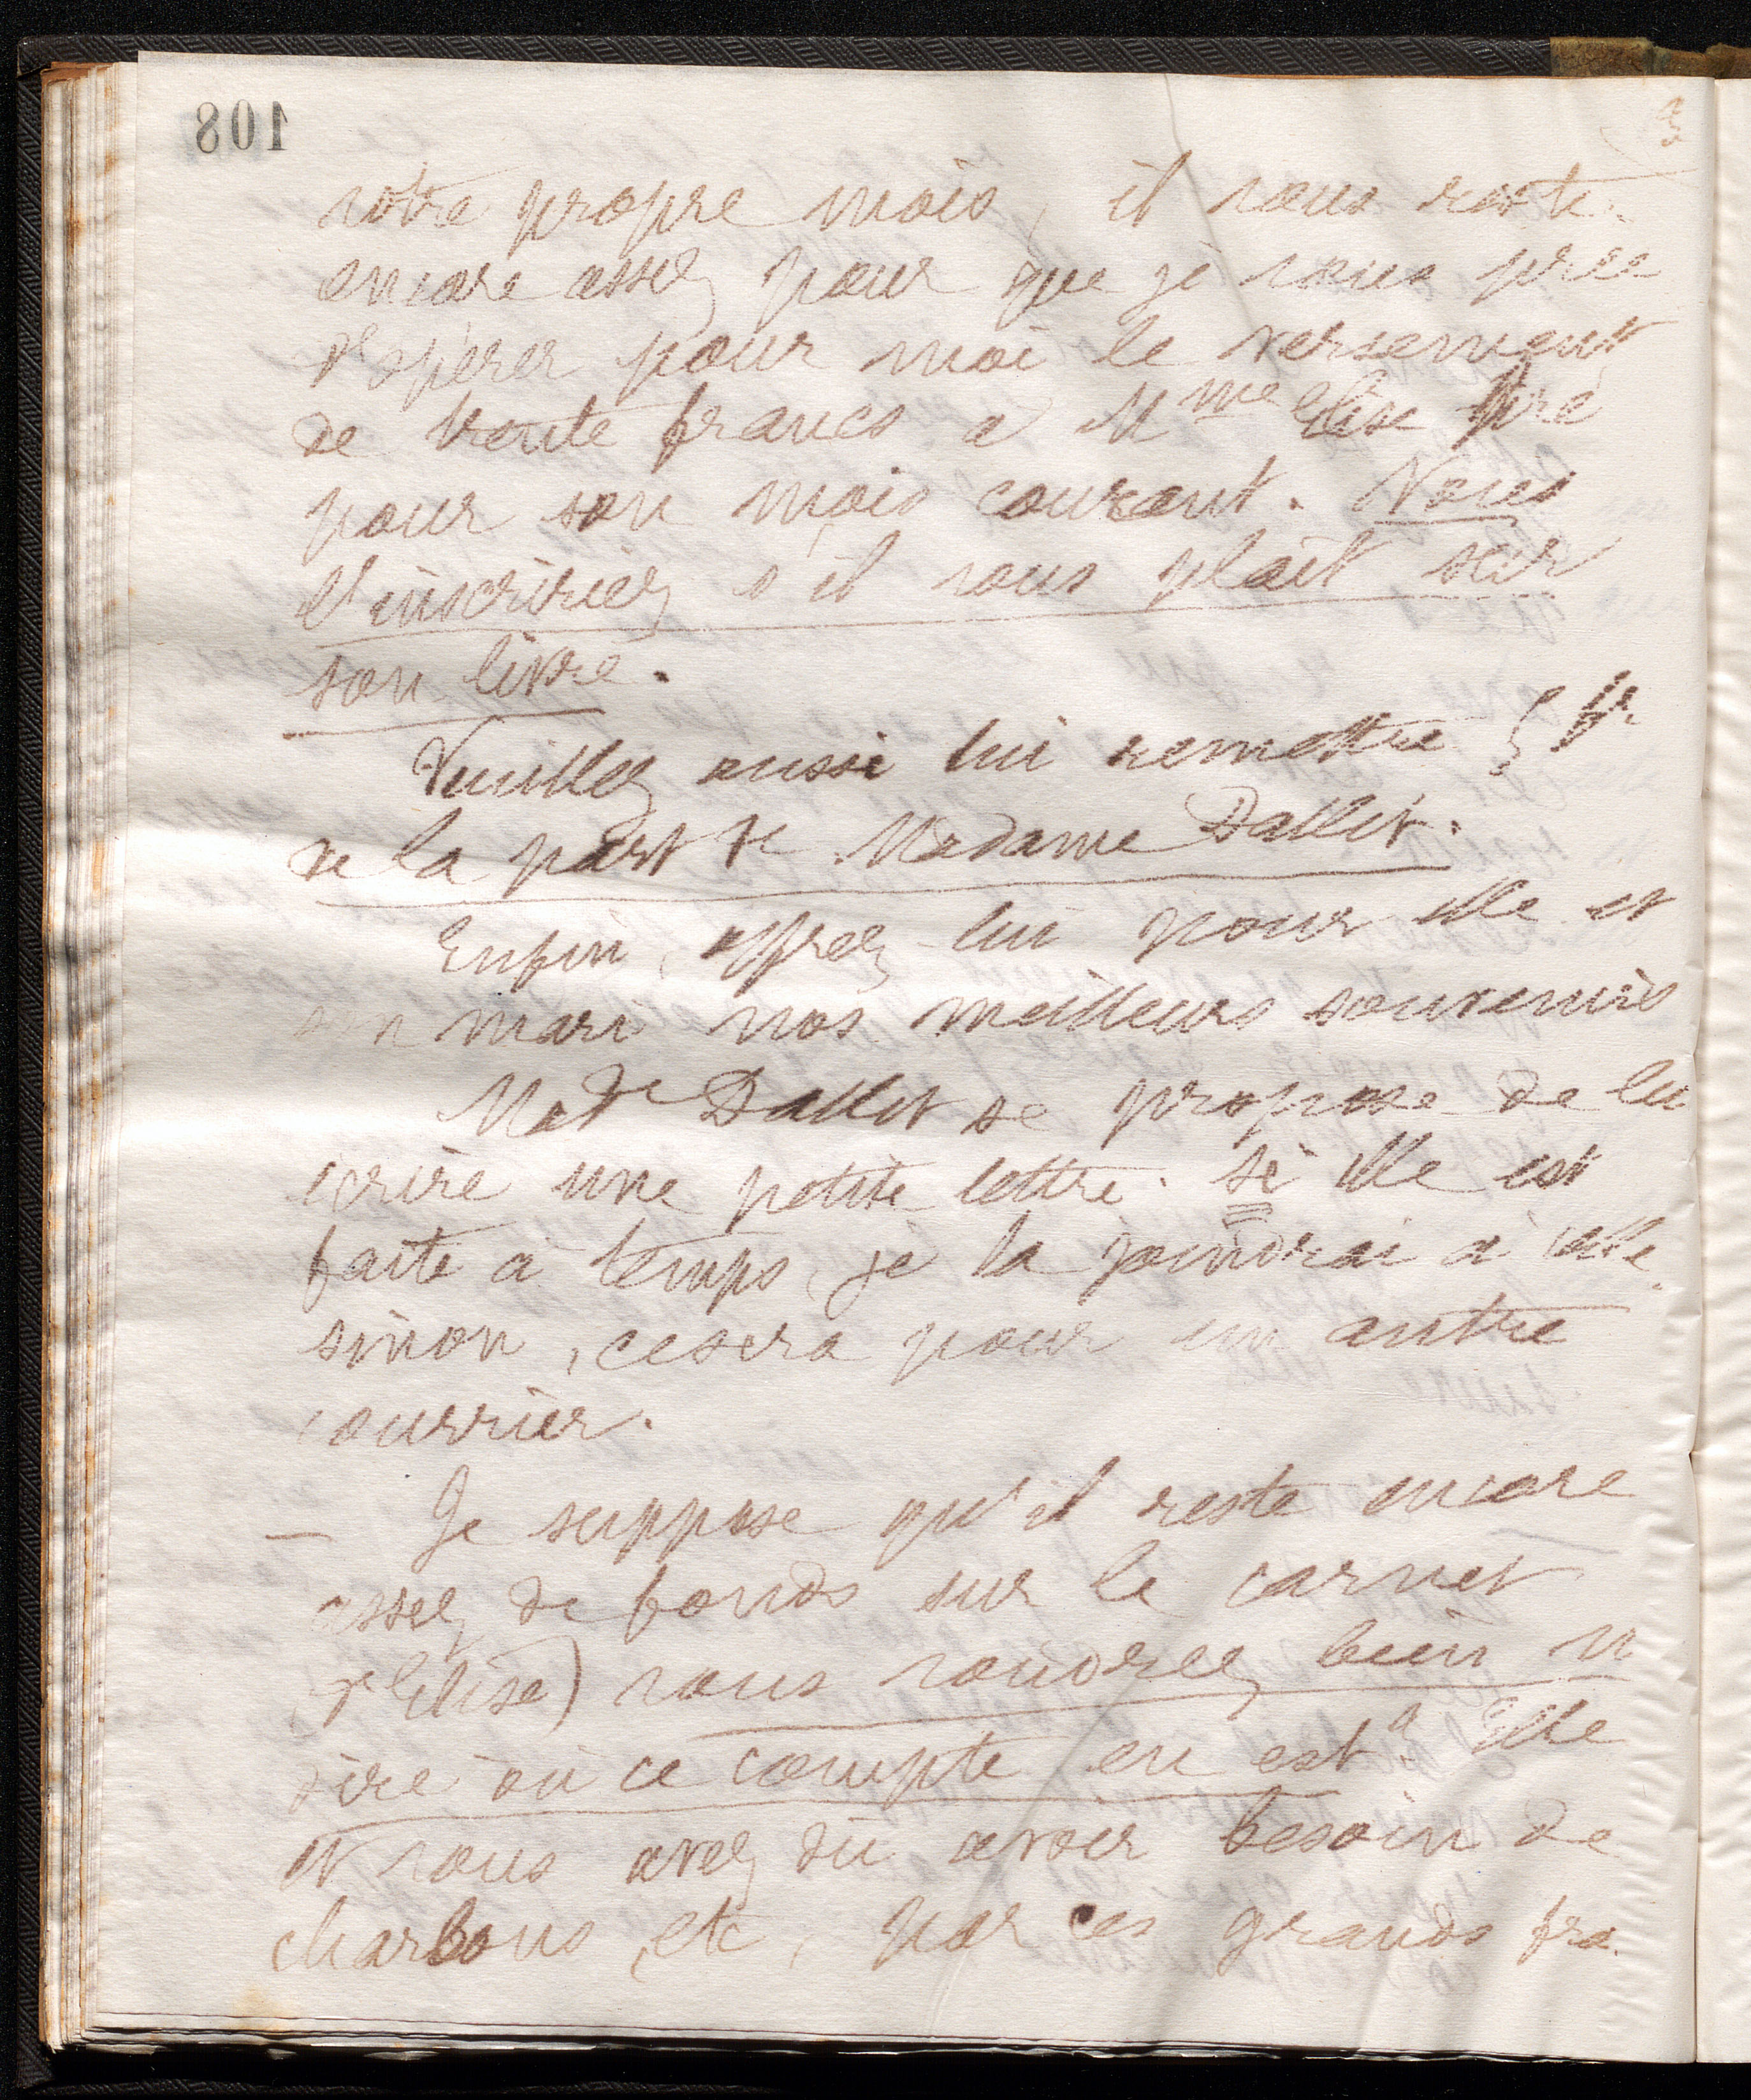 108
votre propre mois, il vous reste
encore assez pour que je vous prie
d'opérer pour moi le versement
de trente francs a Mme Elise
pour son mois courant. Vous
l'inscririez s'il vous plait sur
son livre.
Veuillez aussi lui remettre 5 fr.
de la part de Madame Dallet.
Enfin, offrez-lui pour elle et
son mari nos meilleurs souvenirs
Made Dallet se propose de lui
écrire une petite lettre. Si elle est
faite à temps, je la joindrai à celle
sinon, ce sera pour un autre
courrier.
— Je suppose qu'il reste encore
assez de fonds sur le carnet
(d'Elise) vous voudrez bien m
dire où ce compte en est. Elle
et vous avez dû avoir besoin de
charbons, etc, par ces grands fro.